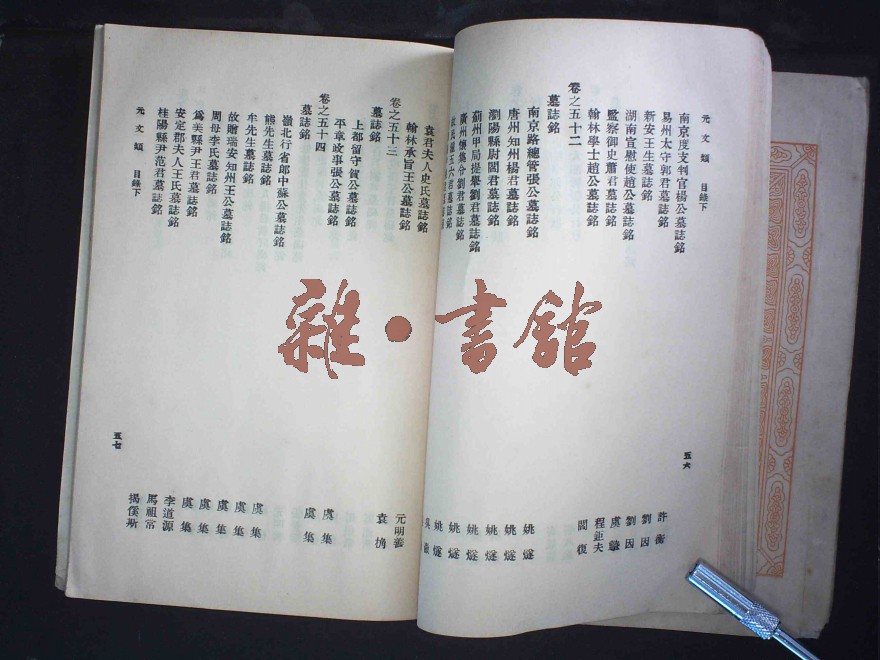 元文類 目錄下 五六
南京度支判官楊公墓誌銘 許衡
易州太守郭君墓誌銘 劉因
新安王生墓誌銘 劉因
湖南宣慰使趙公墓誌銘 摯
監察御史蕭君墓誌銘 程鉅夫
翰林學士趙公墓誌銘 閻復
卷之五十二
墓誌銘
南京路總管張公墓誌銘 姚燧
唐州知州楊君墓誌銘 姚燧
瀏陽縣尉閻君墓誌銘 姚燧
薊州甲局提舉劉君墓誌銘 姚燧
廣州懷集令劉君墓誌銘 姚燧
墓誌銘 姚燧
袁君夫人史氏墓誌銘 元明善
翰林承旨王公墓誌銘 袁桷
卷之五十三
墓誌銘
上都留守賀公墓誌銘 虞集
平章政事張公墓誌銘 虞集
卷之五十四
墓誌銘
嶺北行省郎中蘇公墓誌銘 虞集
熊先生墓誌銘 虞集
牟先生墓誌銘 虞集
故贈瑞安知州王公墓誌銘 虞集
周母李氏墓誌銘 虞集
爲美縣尹王君墓誌銘 李道源
安定郡夫人王氏墓誌銘 馬祖常
桂陽縣尹范君墓誌銘 揭傒斯
元文類 目錄下 五七
雜·書館